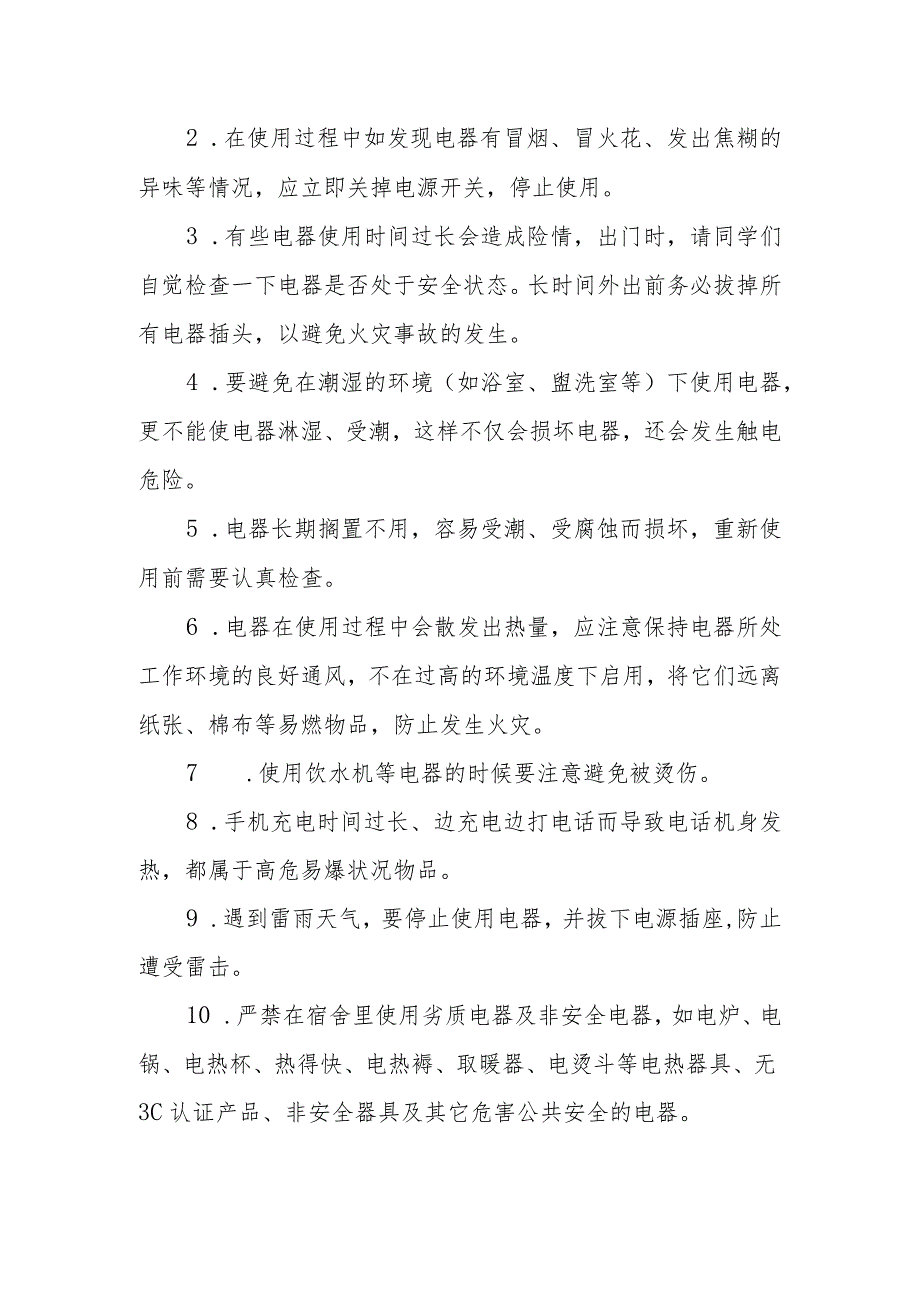 2 .在使用过程中如发现电器有冒烟、冒火花、发出焦糊的
异味等情况，应立即关掉电源开关，停止使用。
3 .有些电器使用时间过长会造成险情，出门时，请同学们
自觉检查一下电器是否处于安全状态。长时间外出前务必拔掉所
有电器插头，以避免火灾事故的发生。
4 .要避免在潮湿的环境（如浴室、盥洗室等）下使用电器，
更不能使电器淋湿、受潮，这样不仅会损坏电器，还会发生触电
危险。
5 .电器长期搁置不用，容易受潮、受腐蚀而损坏，重新使
用前需要认真检查。
6 .电器在使用过程中会散发出热量，应注意保持电器所处
工作环境的良好通风，不在过高的环境温度下启用，将它们远离
纸张、棉布等易燃物品，防止发生火灾。
7 .使用饮水机等电器的时候要注意避免被烫伤。
8 .手机充电时间过长、边充电边打电话而导致电话机身发
热，都属于高危易爆状况物品。
9 .遇到雷雨天气，要停止使用电器，并拔下电源插座,防止
遭受雷击。
10 .严禁在宿舍里使用劣质电器及非安全电器，如电炉、电
锅、电热杯、热得快、电热褥、取暖器、电烫斗等电热器具、无
3C认证产品、非安全器具及其它危害公共安全的电器。